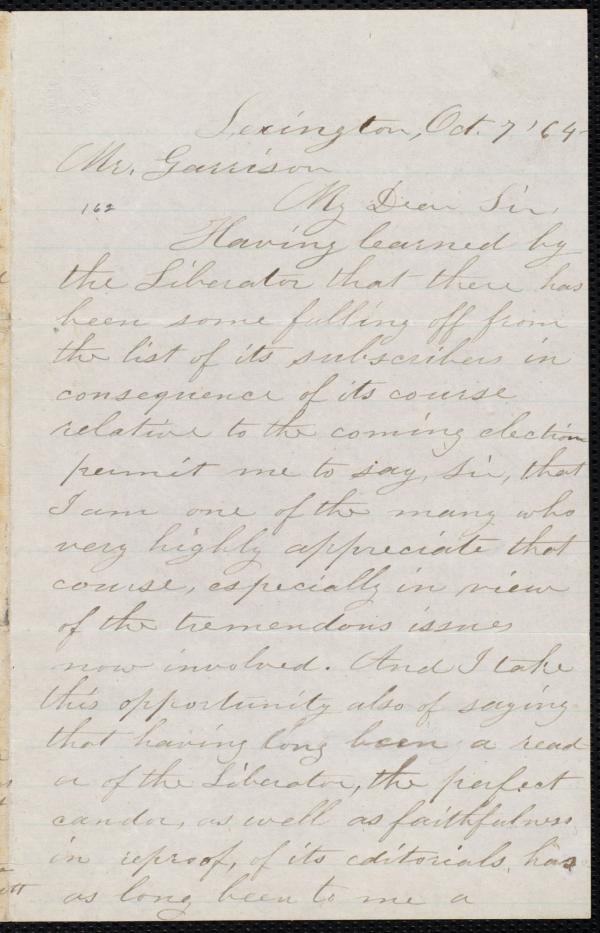 Lexington, Oct. 7 '64
Mr. Garrison
162 My Dear Sir,
Having learned by
the Liberator that there has
been some falling off from
the list of its subscribers in
consequence of its course
relative to the coming election
permit me to say, Sir, that
I am one of the many who
very highly appreciate that
course, especially in view
of the tremendous issues
now involved. And I take
this opportunity also of saying
that having long been a read
er of the Liberator, the perfect
candor, as well as faithfulness
in reproof, of its editorials, has
as long been to me a